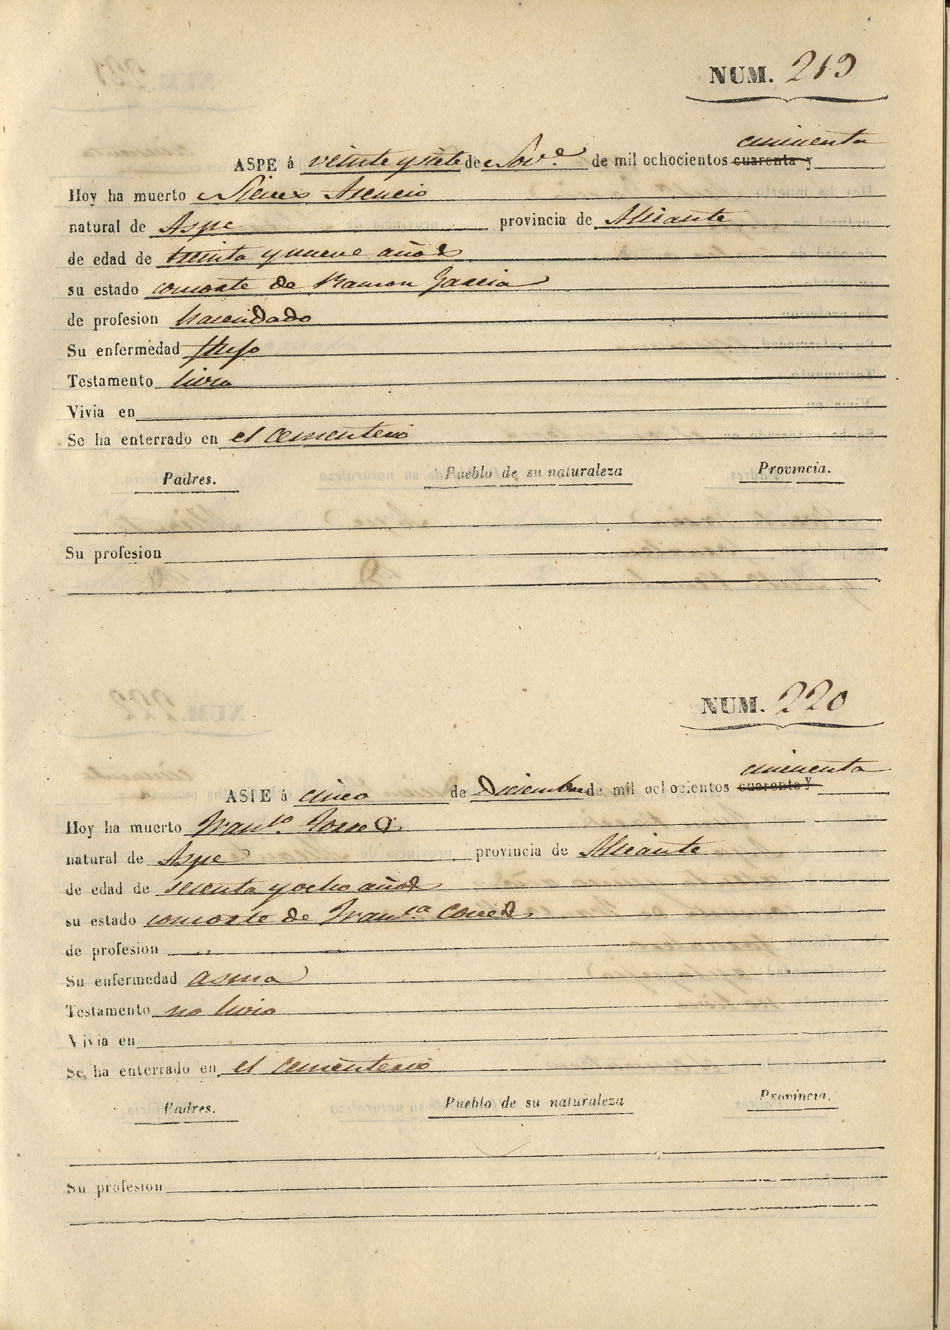 NUM. 219
cincuenta
ASPE á veinte y siete de Nov.e de mil ochocientos cuarenta y
Hoy ha muerto Nieves Asencio
natural de Aspe provincia de Alicante
de edad de treinta y nueve años
su estado consorte de Ramon Garcia
de profesion hacendado
Su enfermedad flujo
Testamento hizo
Vivia en
Se ha enterrado en el cementerio
Padres. Pueblo de su naturaleza Provincia.
Su profesion
NUM. 220
cincuenta
ASPE á cinco de Diciembre de mil ochocientos cuarenta y
Hoy ha muerto Fran.co
natural de Aspe provincia de Alicante
de edad de setenta y ocho años
su estado consorte de Fran.ca
de profesion
Su enfermedad asma
Testamento no hizo
Vivia en
Se ha enterrado en el cementerio
Padres. Pueblo de su naturaleza Provincia.
Su profesion